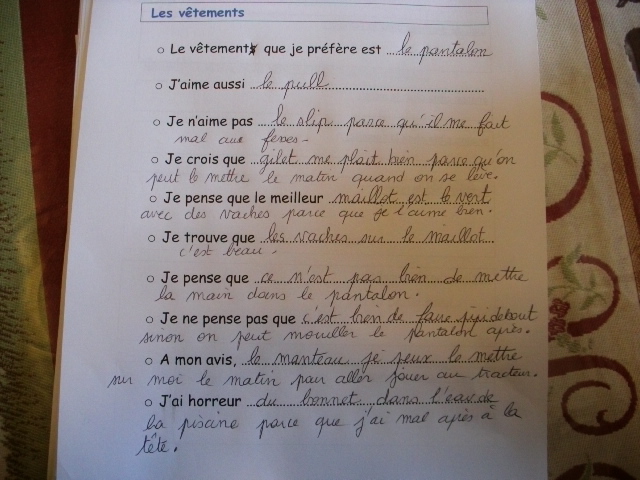 Les vêtements
Le vêtement que je préfère est le pantalon
J'aime aussi le pull
Je n'aime pas le slip parce qu'il me fait
mal aux fesses.
Je crois que gilet me plait bien parce qu'on
peut le mettre le matin quand on se lève.
Je pense que le meilleur maillot est le vert
avec des vaches parce que je l'aime bien.
Je trouve que les vaches sur le maillot
c'est beau.
Je pense que ce n'est pas bien de mettre
la main dans le pantalon.
Je ne pense pas que c'est bien de faire pipi debout
sinon on peut mouiller le pantalon après.
A mon avis, le manteau je peux le mettre
sur moi le matin pour aller jouer au tracteur.
J'ai horreur du bonnet dans l'eau de
la piscine parce que j'ai mal après à la
tête.